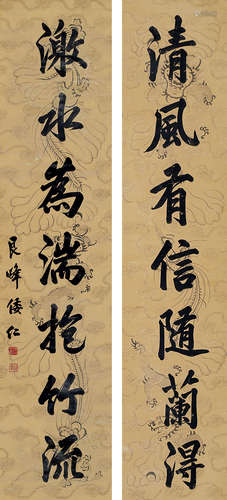 清風有信隨蘭得
激水為湍抱竹流
艮峰倭仁